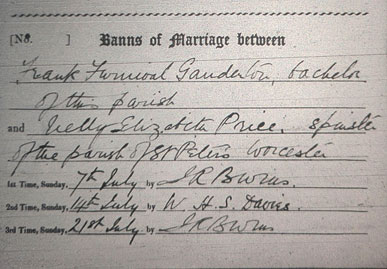 [No. ] Banns of Marriage between
Frank Furnival Ganderton, bachelor
of this parish
and Nelly Elizabeth Price, spinster
of the parish of St Peters Worcester
1st Time, Sunday, 7th July by
2nd Time, Sunday, 14th July by W. H. S. Davies.
3rd Time, Sunday, 21st July by